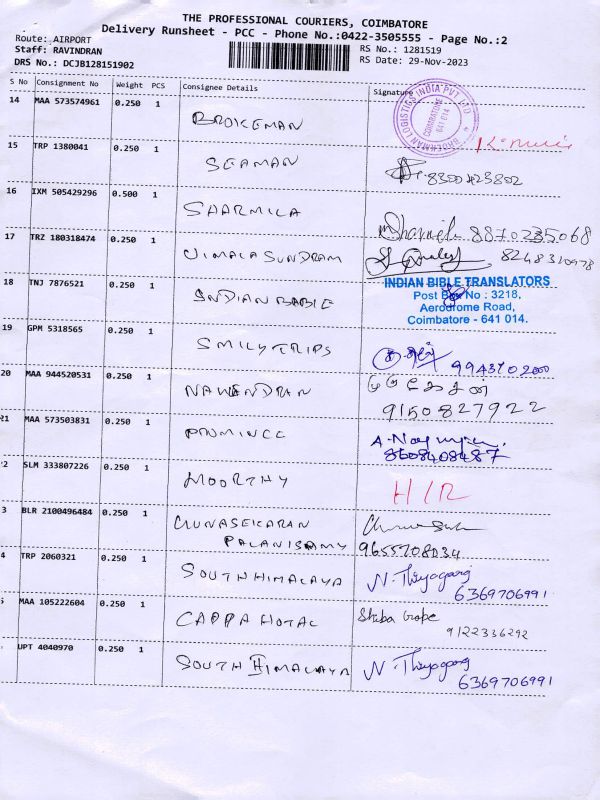 THE PROFESSIONAL COURIERS, COIMBATORE
Delivery Runsheet - PCC - Phone No.:0422-3505555 - Page No.:2
Route: AIRPORT
RS No.: 1281519
Staff: RAVINDRAN
RS Date: 29-Nov-2023
DRS No.: DCJB128151902
S No Consignment No Weight PCS Consignee Details Signature
14 MAA 573574961 0.250 1 BROKEMAN
COIMBATORE
641 014
15 TRP 1380041 0.250 1 SEAMAN 8300423802
16 IXM 505429296 0.500 1 SHARMILA 8870235068
17 TRZ 180318474 0.250 1 VIMALA SUNDRAM 8248310978
18 TNJ 7876521 0.250 1 INDIAN BABLE
INDIAN BIBLE TRANSLATORS
Post Box No : 3218,
Aerodrome Road,
Coimbatore - 641 014.
19 GPM 5318565 0.250 1 SMILYTRIPS
20 MAA 944520531 0.250 1 NAWENDRAN முருகேசன்
9150827922
21 MAA 573503831 0.250 1
8608408487
2 SLM 333807226 0.250 1 MOORTHY H/R
3 BLR 2100496484 0.250 1 GUNASEKARAN
PALANISAMY 9655708034
4 TRP 2060321 0.250 1 SOUTH HIMALAYA N. Thiyagaraj
6369706991
5 MAA 105222604 0.250 1 CAPPA HOTAL Shiba
9122336292
UPT 4040970 0.250 1 SOUTH HIMALAYA N. Thiyagaraj
6369706991